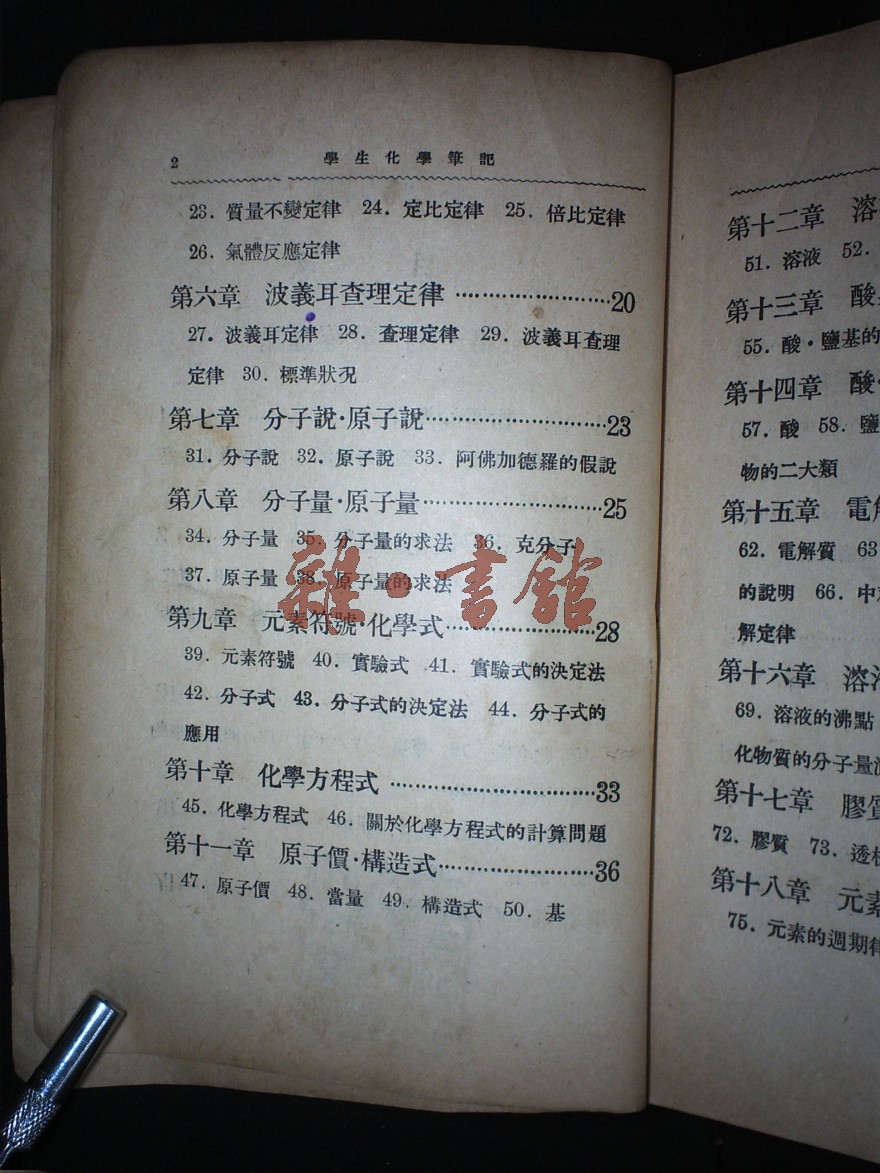 2 學生化學筆記
23. 質量不變定律 24. 定比定律 25. 倍比定律
26. 氣體反應定律
第六章 波義耳查理定律 ························20
27. 波義耳定律 28. 查理定律 29. 波義耳查理
定律 30. 標準狀況
第七章 分子說·原子說····························23
31. 分子說 32. 原子說 33. 阿佛加德羅的假說
第八章 分子量·原子量····························25
34. 分子量 35. 分子量的求法 36. 克分子
37. 原子量 38. 原子量的求法
第九章 元素符號·化學式························28
39. 元素符號 40. 實驗式 41. 實驗式的決定法
42. 分子式 43. 分子式的決定法 44. 分子式的
應用
第十章 化學方程式 ································33
45. 化學方程式 46. 關於化學方程式的計算問題
第十一章 原子價·構造式························36
47. 原子價 48. 當量 49. 構造式 50. 基
雜·書館
第十二章 溶
51. 溶液 52.
第十三章 酸
55. 酸·鹽基的
第十四章 酸·
57. 酸 58. 鹽
物的二大類
第十五章 電
62. 電解質 63
的說明 66. 中
解定律
第十六章 溶
69. 溶液的沸點
化物質的分子量
第十七章 膠
72. 膠質 73. 透
第十八章 元素
75. 元素的週期律